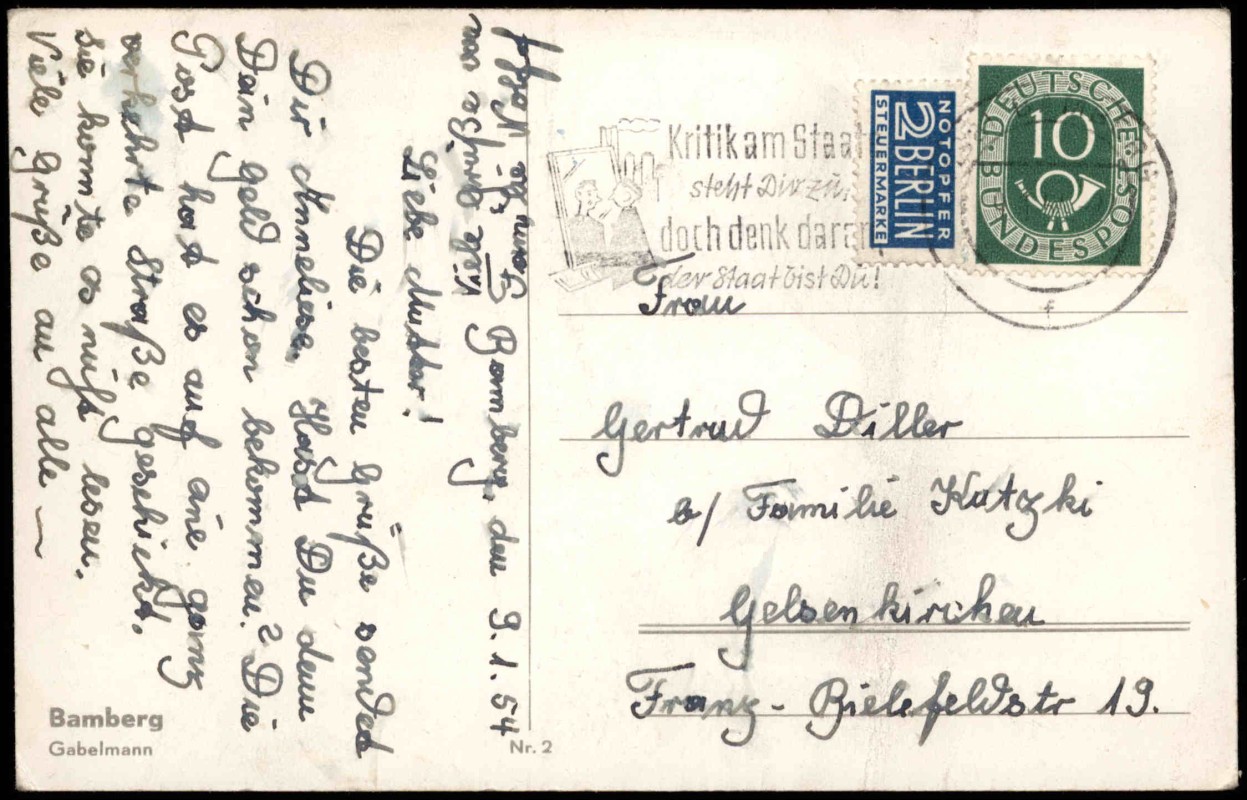 Bamberg, den 9.1.54
Liebe Mutter!
Die besten Grüße sendet
Dir Anneliese. Hast Du denn
Dein Geld schon bekommen? Die
Post hat es auf eine ganz
verkehrte Straße geschickt.
Sie konnte es nicht lesen.
Viele Grüße an alle
Bamberg
Gabelmann
Nr. 2
Kritik am Staat
steht Dir zu,
doch denk daran
der Staat bist Du!
NOTOPFER
2 BERLIN
STEUERMARKE
DEUTSCHE BUNDESPOST
10
Frau
Gertrud Diller
b/ Familie Kutzki
Gelsenkirchen
Franz-Bielefeldstr 19.